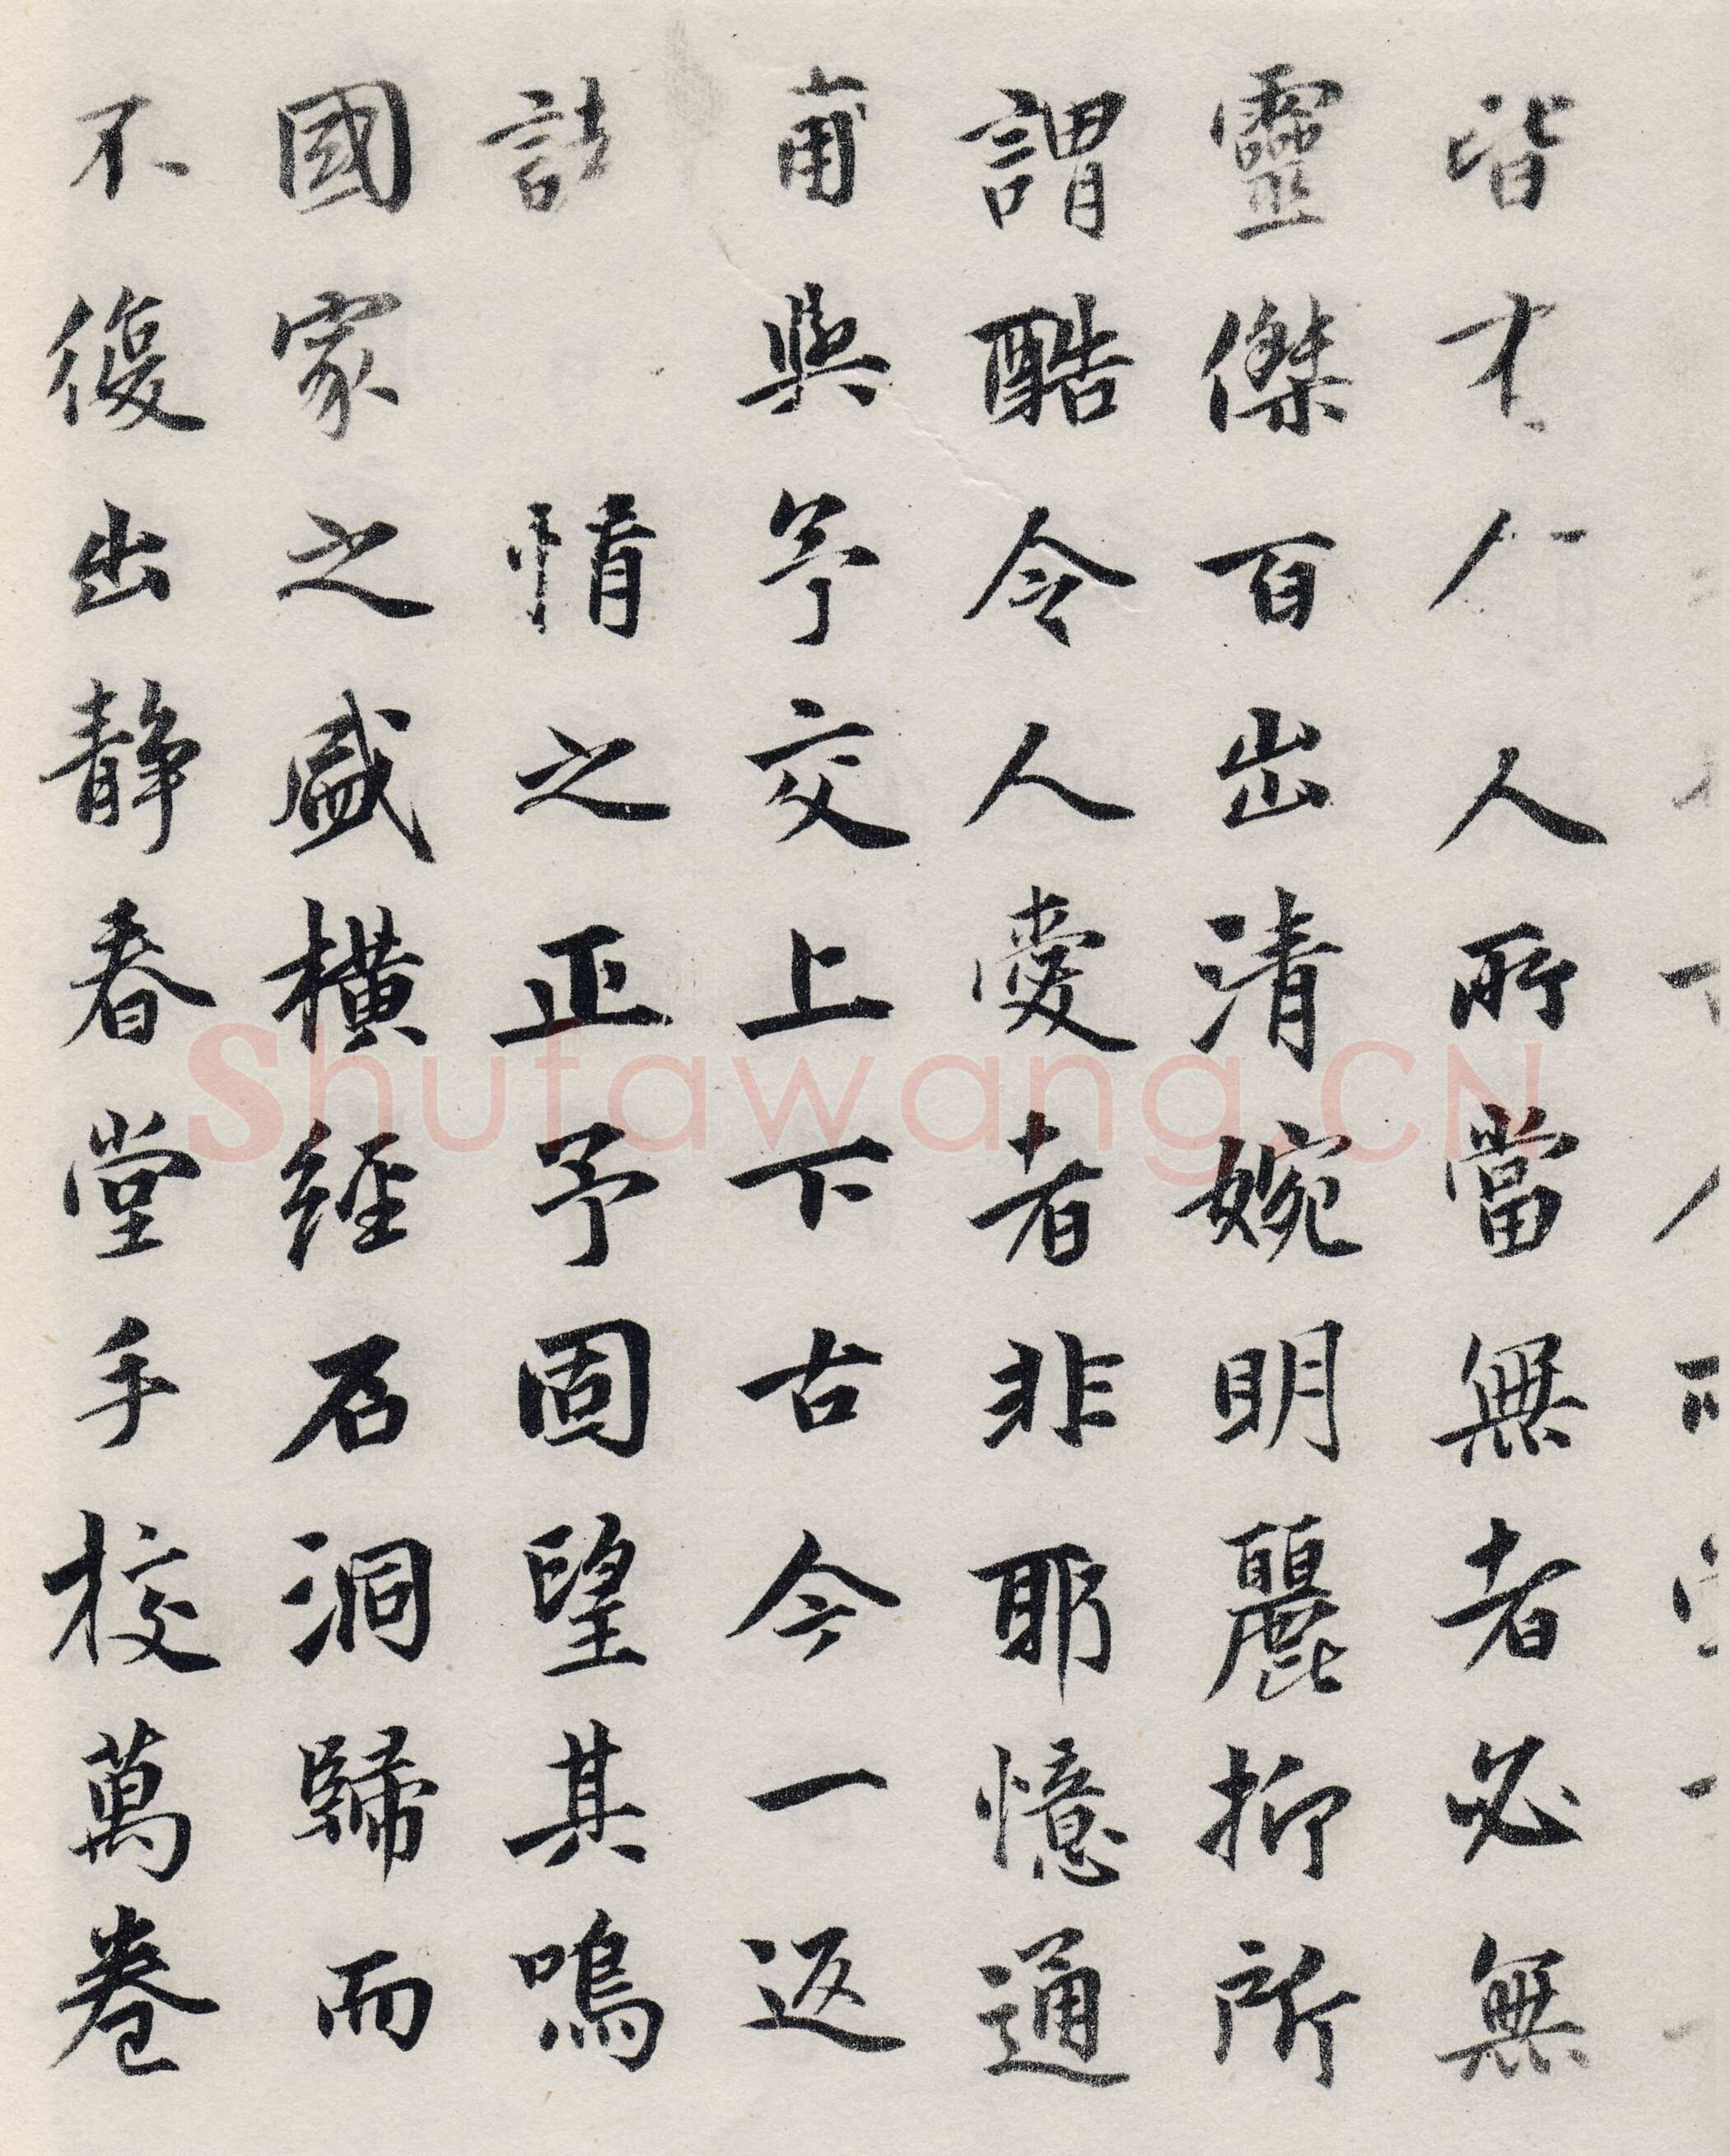 皆才人人所當無者必無
靈傑百出清婉明麗抑所
謂酷令人愛者非耶憶通
甫與予交上下古今一返
詩情之正予固望其鳴
國家之盛橫經石洞歸而
不復出靜春堂手校萬卷
Shufawang.CN